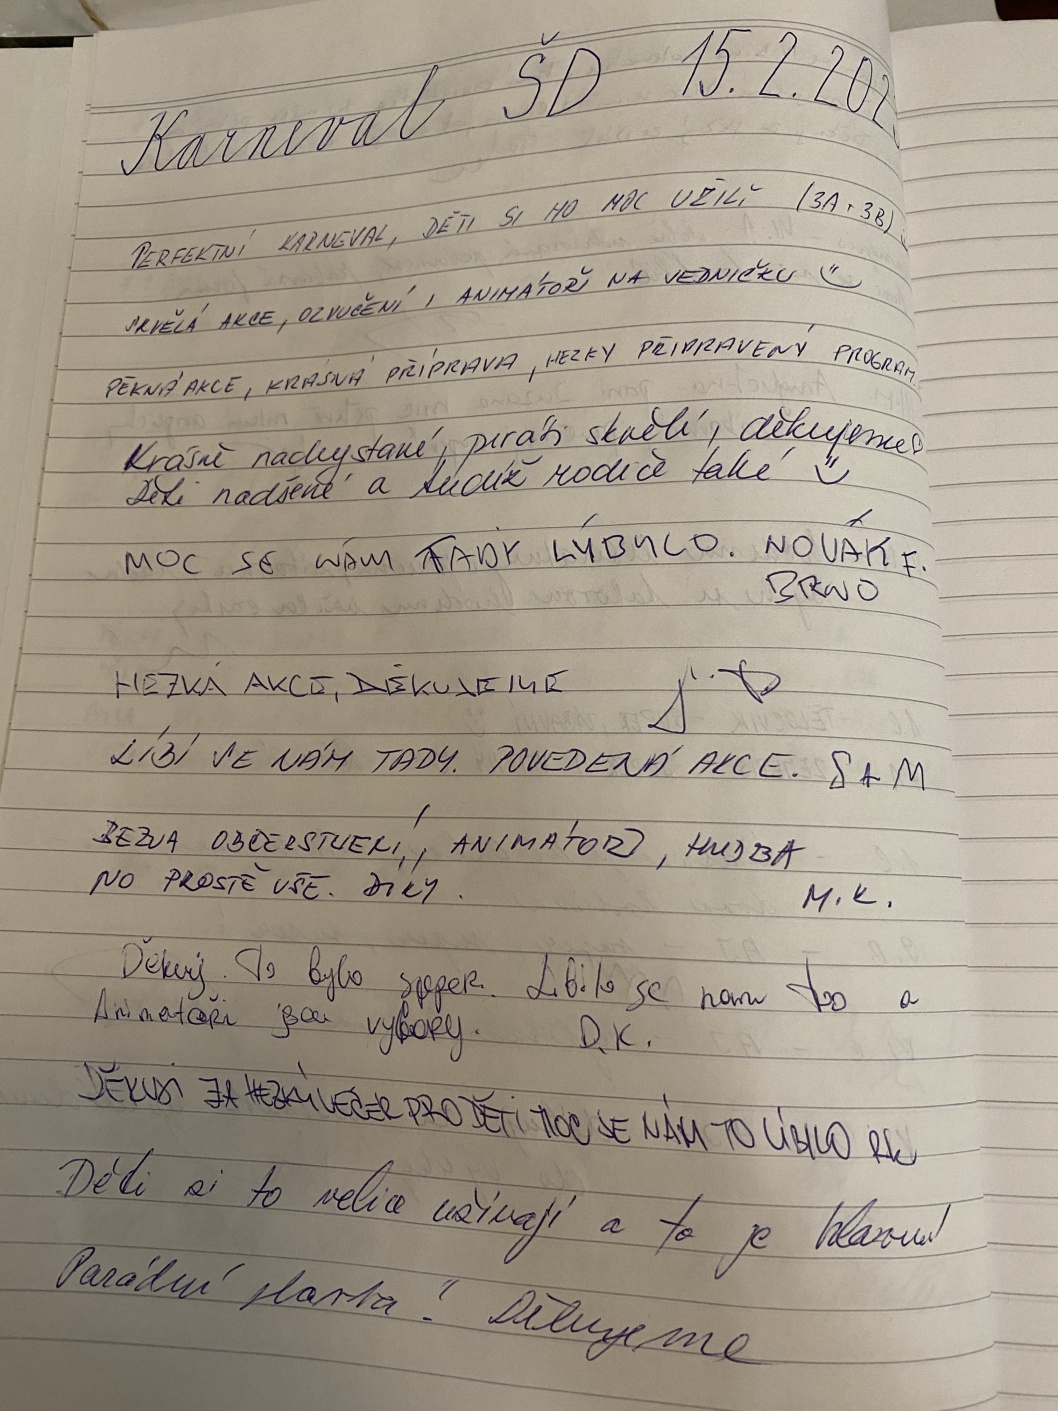 Karneval ŠD 15.2.202
PERFEKTNÍ KARNEVAL, DĚTI SI HO MOC UŽILI (3A + 3B)
SKVĚLÁ AKCE, OZVUČENÍ I ANIMÁTOŘI NA JEDNIČKU
PĚKNÁ AKCE, KRÁSNÁ PŘÍPRAVA, HEZKY PŘIPRAVENÝ PROGRAM
Krásně nachystané, piráti skvělí, děkujeme
Děti nadšené a tudíž rodiče také
MOC SE NÁM TADY LÍBYLO. NOVÁK F.
BRNO
HEZKÁ AKCE, DĚKUJEME
LÍBÍ SE NÁM TADY. POVEDENÁ AKCE. S+M
BEZVA OBČERSTVENÍ, ANIMÁTOŘI, HUDBA
NO PROSTĚ VŠE. DÍKY. M.K.
Děkuji. To bylo super. Libilo se nam too a
Animatoři jsou vybory. D.K.
DĚKUJI ZA HEZKÝ VEČER PRO DĚTI MOC SE NÁM TO LÍBILO RK
Děti si to velice užívají a to je hlavní
Parádní stavba! Děkujeme